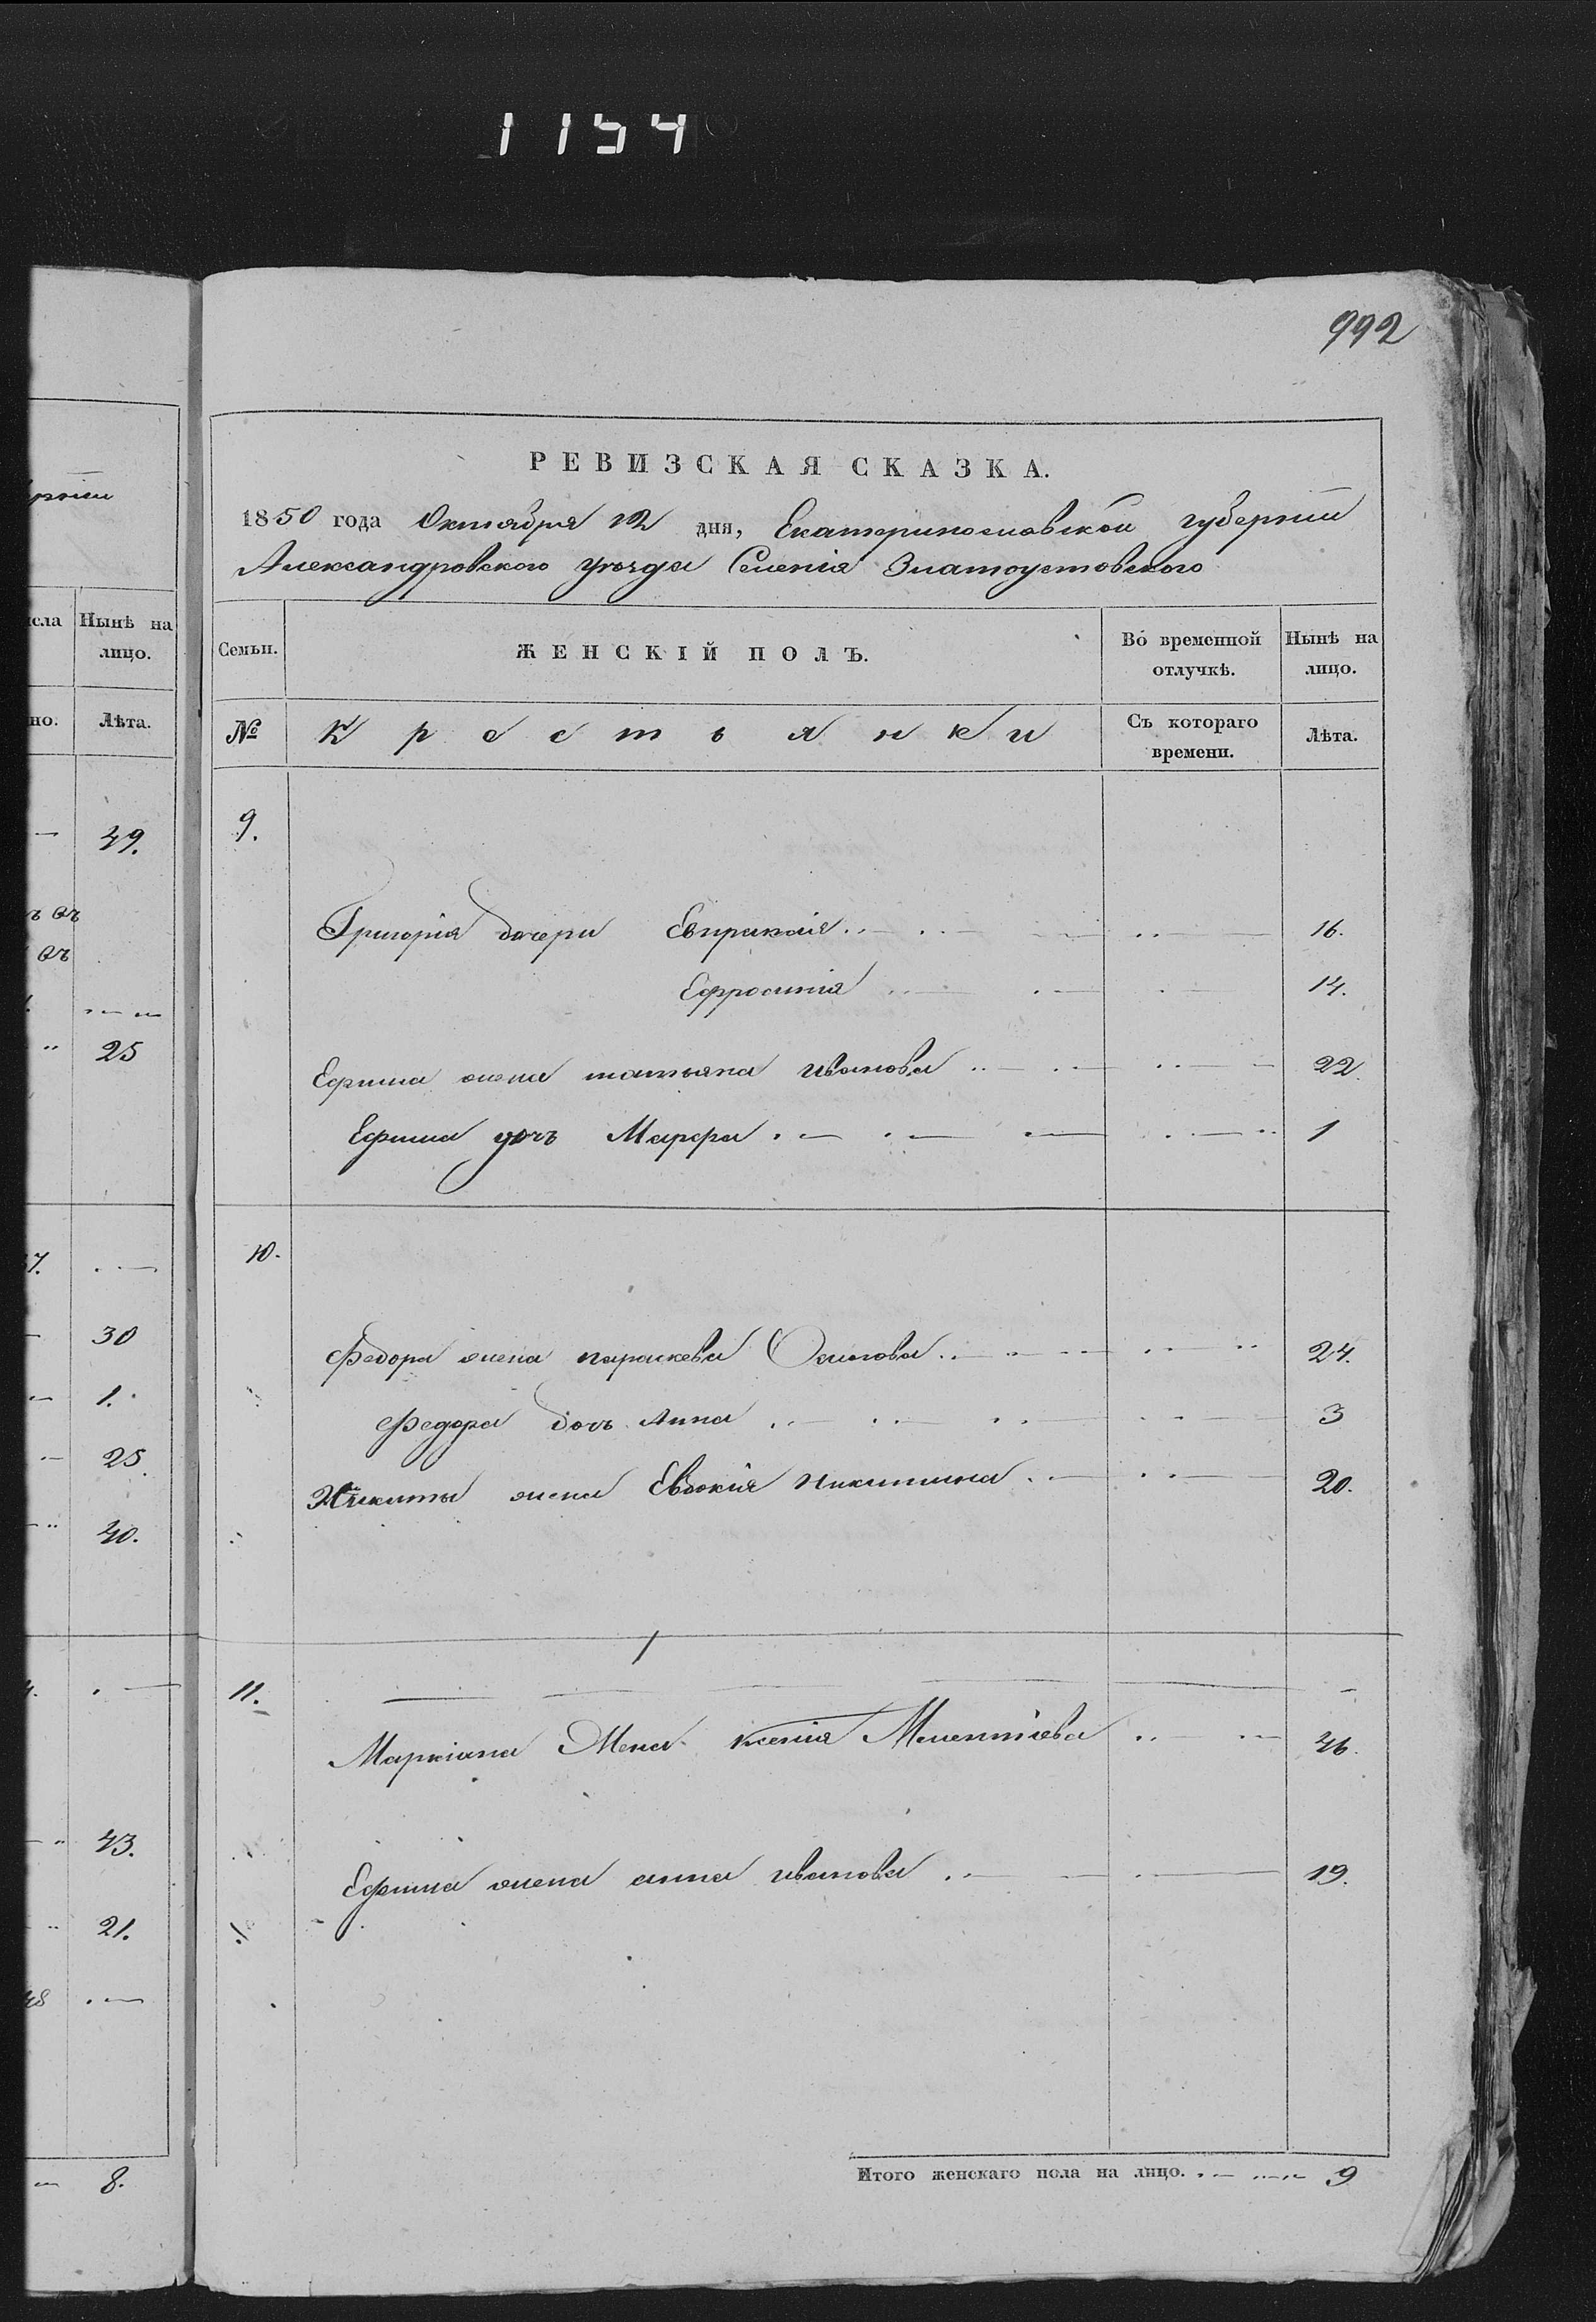 1154
992
РЕВИЗСКАЯ СКАЗКА.
1850 года Октября 12 дня, Екатеринославской губернии
Александровского уезда Селенія Златоустовского
Семьи. ЖЕНСКІЙ ПОЛЪ. Во временной отлучкѣ. Нынѣ на лицо.
№ Крестьянки Съ котораго времени. Лѣта.
9.
Григорія дочери Евпраксія 16.
Ефросинія 14.
Ефима жена татьяна иванова 22.
Ефима дочь Марфа 1
10.
Федора жена параскева Осипова 24.
Федора дочь Анна 3
Никиты жена Евдокия никитина 20.
11.
Маркіана Жена ксенія Мелентіева 46.
Ефима жена анна иванова 19.
Итого женскаго пола на лицо. 9
Нынѣ на
лицо.
Лѣта.
49.
25
30
1.
25.
40.
43.
21.
8.